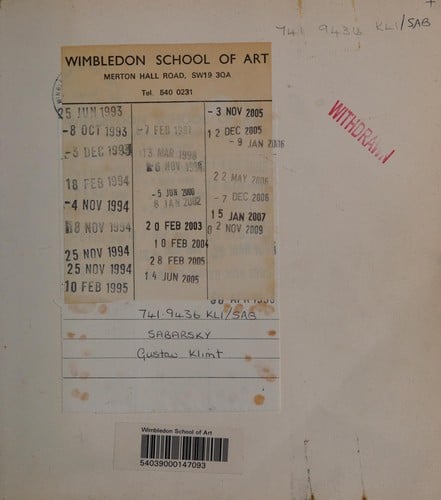 741 9436 KLI/SAB
WIMBLEDON SCHOOL OF ART
MERTON HALL ROAD, SW19 3QA
Tel. 540 0231
25 JUN 1993
-8 OCT 1993
-3 DEC 1993
18 FEB 1994
-4 NOV 1994
NOV 1994
25 NOV 1994
25 NOV 1994
10 FEB 1995
-7 FEB 1997
13 MAR 1998
NOV 1998
-5 JUN 2000
8 JAN 2002
20 FEB 2003
10 FEB 2004
28 FEB 2005
14 JUN 2005
-3 NOV 2005
12 DEC 2005
-9 JAN 2006
22 MAY 2006
-7 DEC 2006
15 JAN 2007
02 NOV 2009
WITHDRAWN
741.9436 KLI/SAB
SABARSKY
Gustav Klimt
Wimbledon School of Art
54039000147093